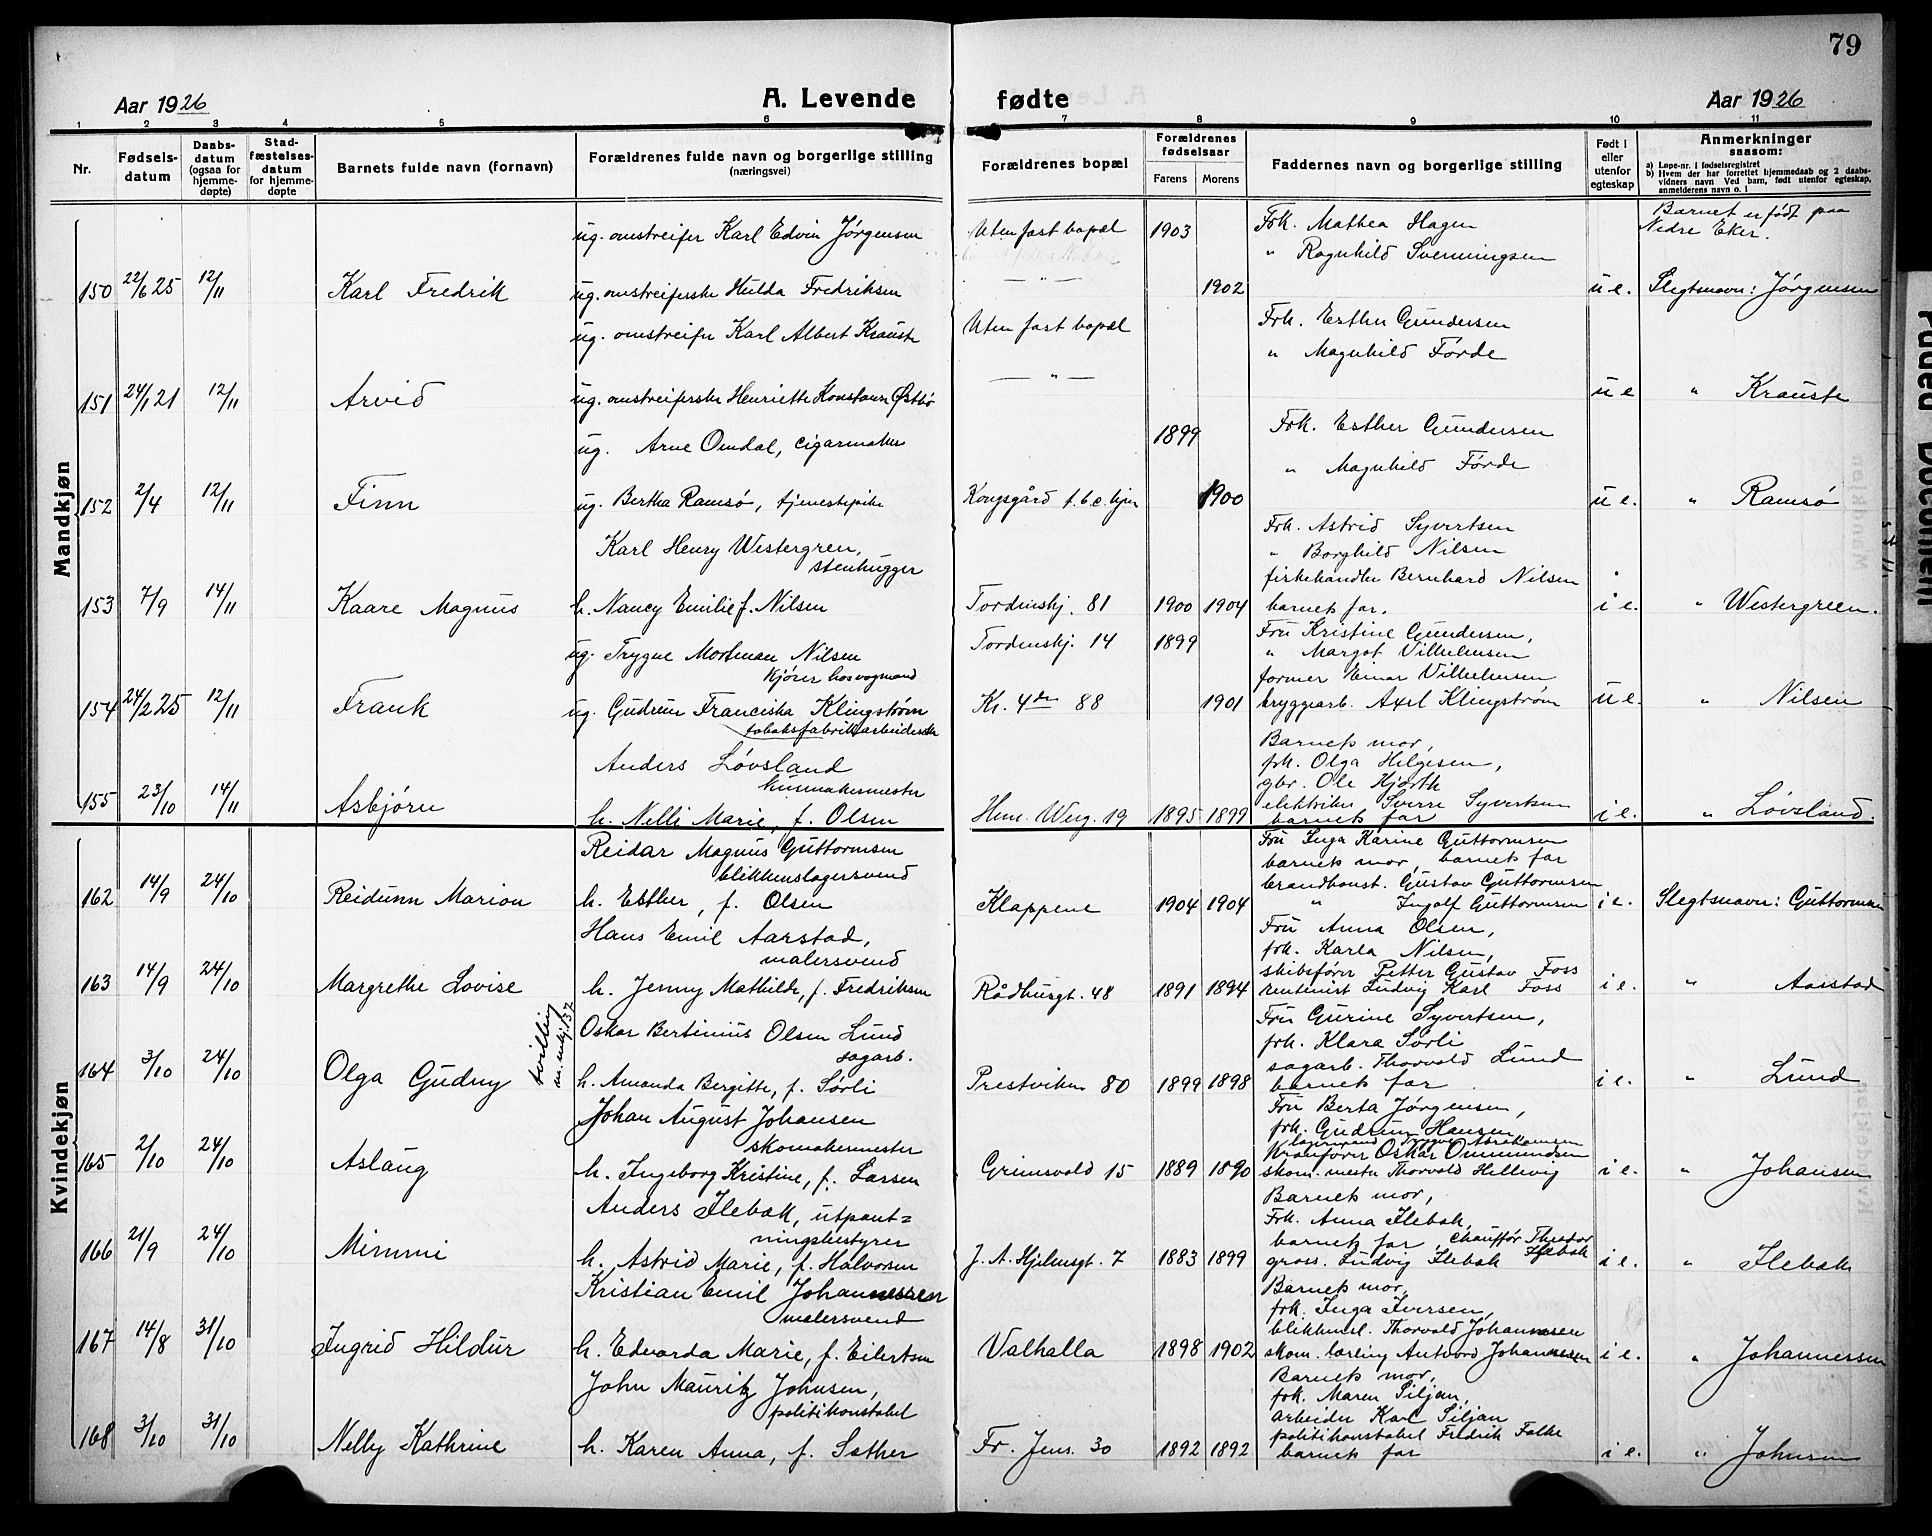 79
Aar 1926
A. Levende fødte
Aar 1926
1 2 3 4 5 6 7 8 9 10 11
Nr.
Fødsels-datum
Daabs-datum (ogsaa for hjemme-døpte)
Stad-fæstelses-datum for hjemme-døpte
Barnets fulde navn (fornavn)
Forældrenes fulde navn og borgerlige stilling (næringsvei)
Forældrenes bopæl
Forældrenes fødselsaar
Farens Morens
Faddernes navn og borgerlige stilling
Født i eller utenfor egteskap
Anmerkninger saasom:
a) Løpe-nr. i fødselsregistret
b) Hvem der har forrettet hjemmedaab og 2 daabs-vidners navn Ved barn, født utenfor egteskap, anmelderens navn o. l
Mandkjøn
ug. omstreifer Karl Edvin Jørgensen Uten fast bopæl 1903 Frk. Mathea Hagen Barnet er født paa
" Ragnhild Svenningsen Nedre Eker.
150 22/6 25 12/11 Karl Fredrik ug. omstreiferske Hulda Fredriksen — " — 1902 u e. Slegtsnavn: Jørgensen
ug. omstreifer Karl Albert Krauste Uten fast bopæl Frk. Esther Gundersen
" Magnhild Førde
151 24/1 21 12/11 Arvid ug. omstreiferske Henriette Konstanse Østbø — " — u e " Krauste
ug. Arne Omdal, cigarmaker 1899 Frk. Esther Gundersen
" Magnhild Førde
152 2/4 12/11 Finn ug. Bertha Ramsø, tjenestepike Kongsgård 1900 u e. " Ramsø
Karl Henry Westergren, Frk. Astrid Syvertsen
stenhugger " Borghild Nilsen
fiskehandler Bernhard Nilsen
153 7/9 14/11 Kaare Magnus h. Nancy Emilie f. Nilsen Tordenskj. 81 1900 1904 barnets far. i e. " Westergreen.
ug. Trygve Mortman Nilsen Tordenskj. 14 1899 Fru Kristine Gundersen,
kjører hos vogmand " Margot Vilhelmsen
former Einar Vilhelmsen
154 24/2 25 12/11 Frank ug. Gudrun Franciska Klingstrøm Kr. 4de 88 1901 bryggearb. Axel Klingstrøm u e. " Nilsen
tobaksfabrikarbeiderske
Anders Løvsland Barnets mor,
buntmakermester frk. Olga Helgesen,
gbr. Ole Hjorth
elektriker Sverre Syvertsen
155 23/10 14/11 Asbjørn h. Nelli Marie, f. Olsen Hen. Werg. 19 1895 1899 barnets far i e. " Løvsland.
Kvindekjøn
Reidar Magnus Guttormsen Fru Inga Karine Guttormsen
blikkenslagersvend barnets mor, barnets far
brandkonst. Gustav Guttormsen
162 14/9 24/10 Reidunn Marion h. Esther, f. Olsen Klappene 1904 1904 " Ingolf Guttormsen i e. Slegtsnavn: Guttormsen
Hans Emil Aarstad, Fru Anna Olsen,
malersvend frk. Karla Nilsen,
skibsfører Petter Gustav Foss
163 14/9 24/10 Margrethe Lovise h. Jenny Mathilde, f. Fredriksen Rådhusgt. 48 1891 1894 rentenist Ludvig Karl Foss i e. " Aarstad
tvilling m. mkj. 137
Oskar Bertinius Olsen Lund Fru Gurine Syvertsen,
sagarb. frk. Klara Sørli
sagarb. Thorvald Lund
164 3/10 24/10 Olga Gudny h. Amanda Bergitte, f. Sørli Prestviken 80 1899 1898 barnets far i e. " Lund
Johan August Johansen Fru Berta Jørgensen,
skomakermester frk. Gudrun Hansen
Kranfører Oskar Ommundsen
165 2/10 24/10 Aslaug h. Ingeborg Kristine, f. Larsen Grimsvold 15 1889 1890 skom. mester Thorvald Hellevig i e. " Johansen
Anders Ilebæk, utpant= Barnets mor,
ningsbestyrer Frk. Anna Ilebæk,
barnets far, chauffør Thyedor Ilebæk
166 21/9 24/10 Mimmi h. Astrid Marie, f. Halvorsen J. A. Hjelmsgt. 7 1883 1899 gross. Ludvig Ilebæk i e. " Ilebæk
Kristian Emil Johannessen Barnets mor,
malersvend frk. Inga Iversen,
blikkensl. Thorvald Johannesen
167 14/8 31/10 Ingrid Hildur h. Edvarda Marie, f. Eilertsen Valhalla 1898 1902 skom. lærling Antvord Johannesen i e. " Johannessen
John Mauritz Johnsen, Barnets mor,
politikonstabel frk. Maren Siljan,
arbeider Karl Siljan
politikonstabel Fredrik Falke
168 3/10 31/10 Nelly Kathrine h. Karen Anna, f. Sæther Fr. Jens. 30 1892 1892 barnets far i e. " Johnsen